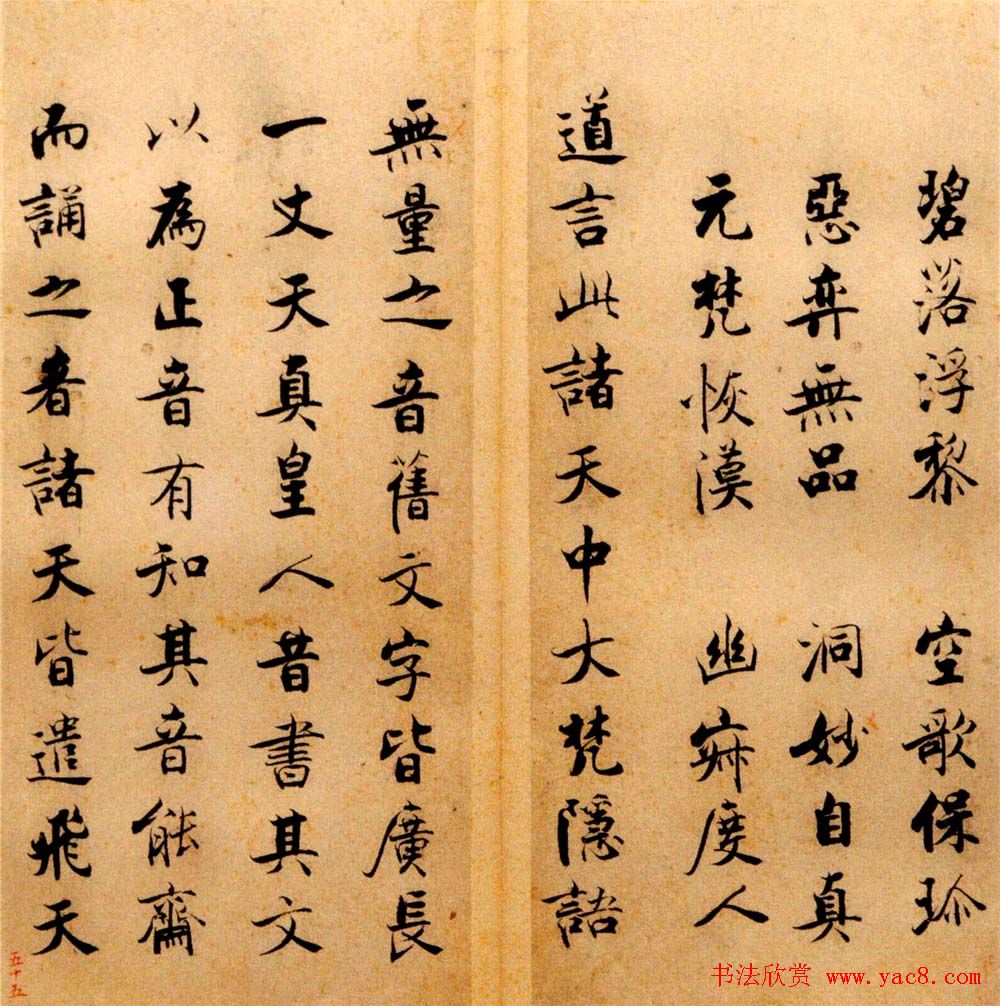 碧落浮黎 空歌保珎
惡弈無品 洞妙自真
元梵恢漠 幽寂度人
道言此諸天中大梵隱語
無量之音舊文字皆廣長
一丈天真皇人昔書其文
以為正音有知其音能齋
而誦之者諸天皆遣飛天
五十五
书法欣赏 www.yac8.com